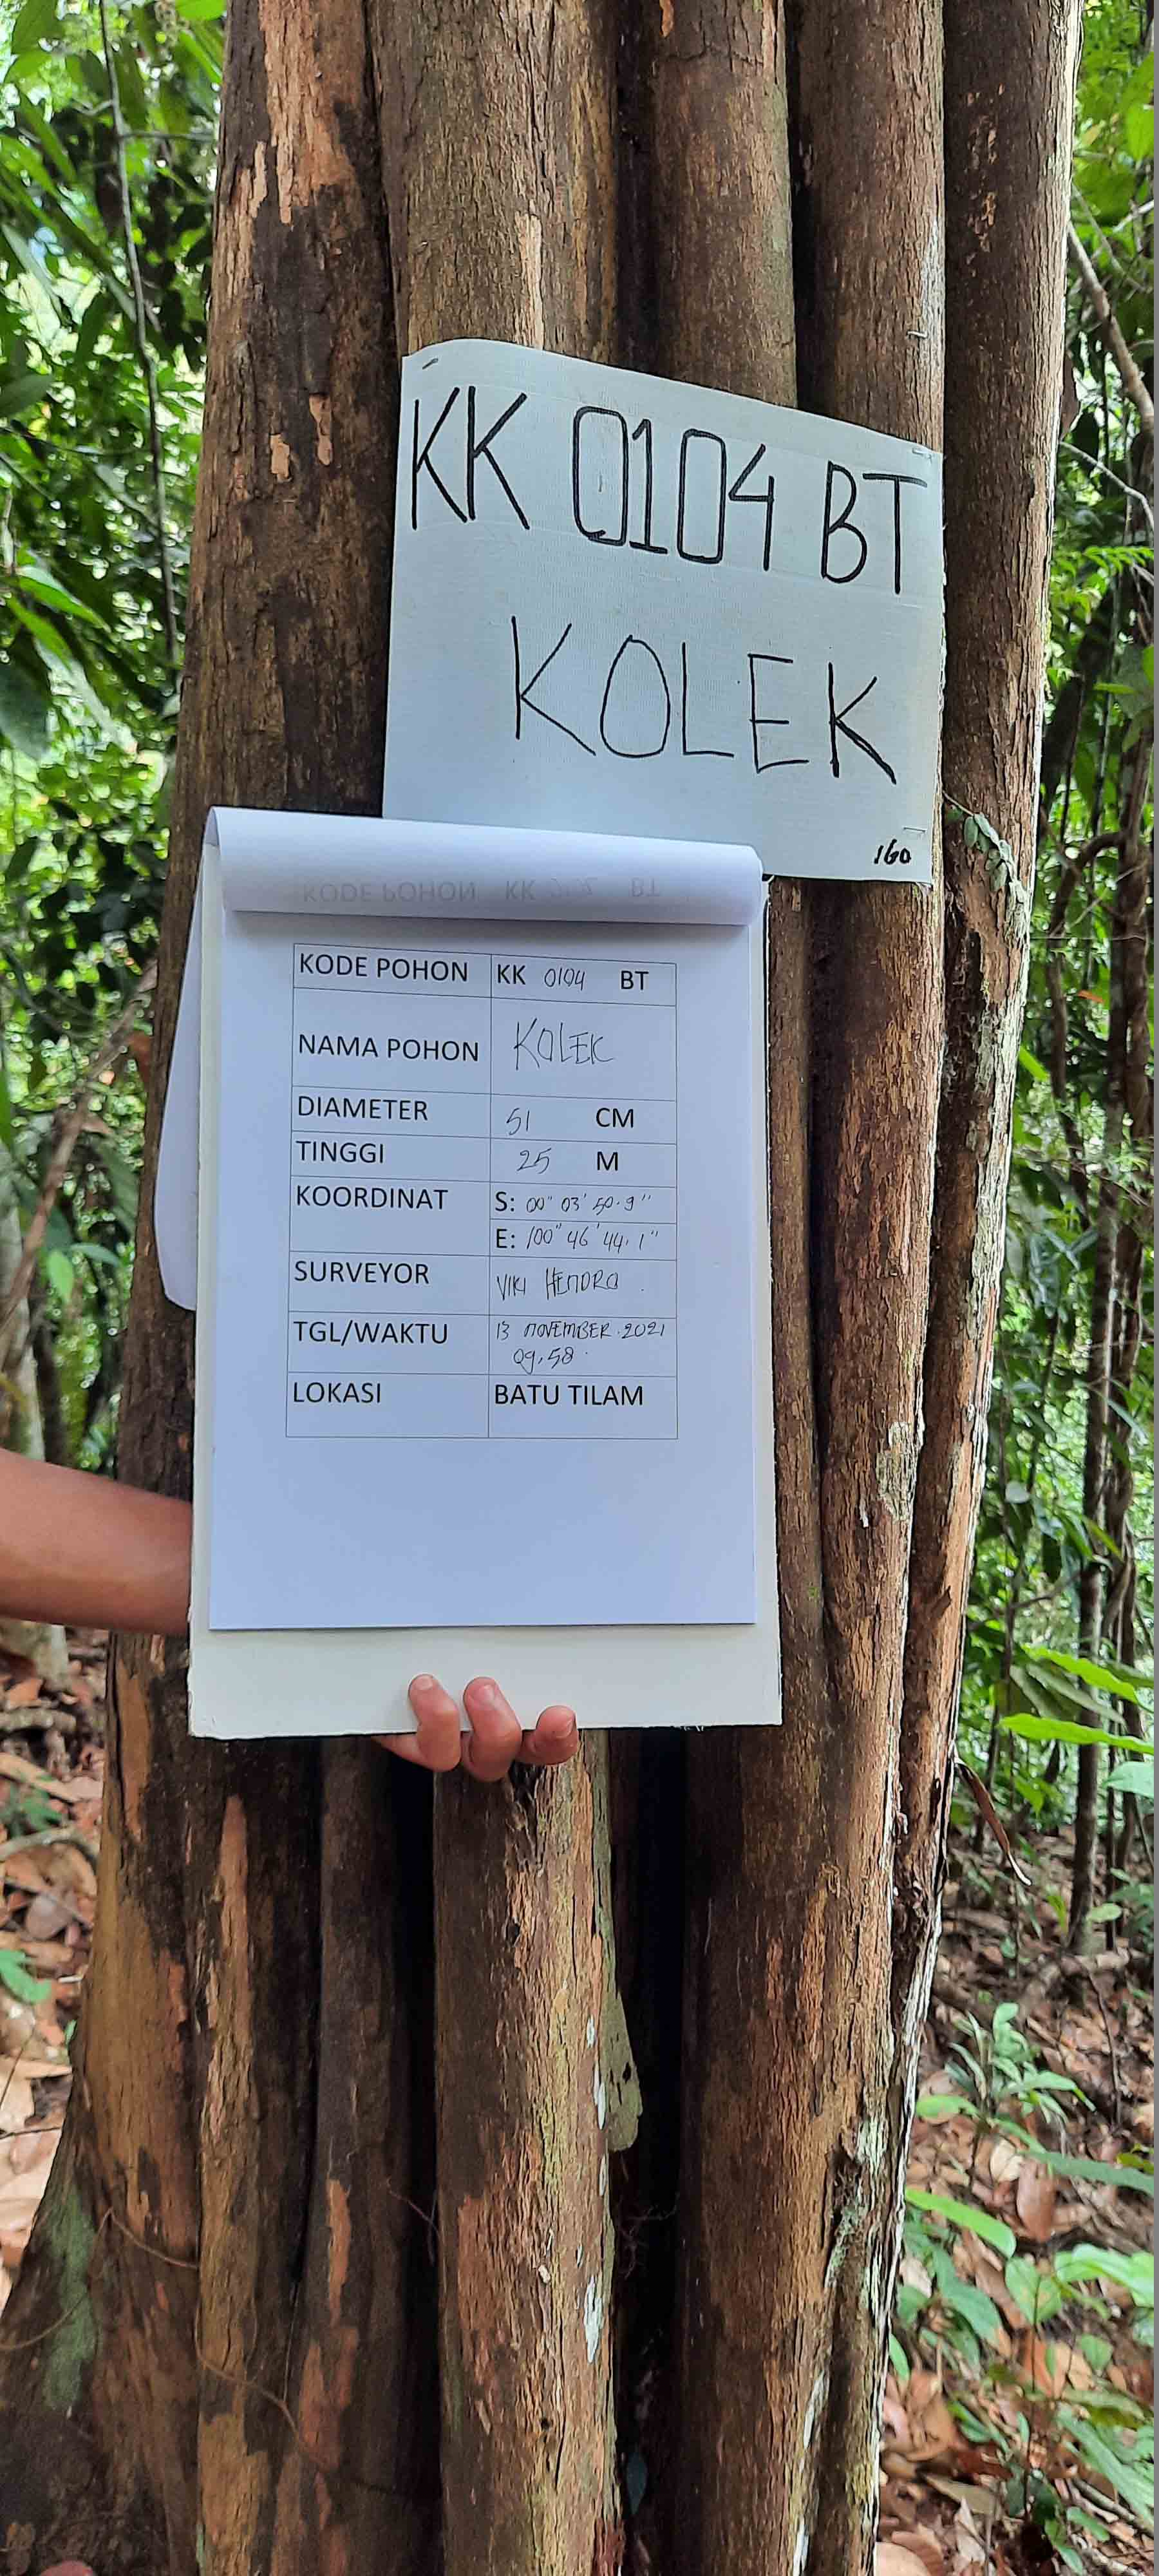 KK 0104 BT
KOLEK
160
KODE POHON KK 0104 BT
NAMA POHON KOLEK
DIAMETER 51 CM
TINGGI 25 M
KOORDINAT S: 00" 03' 50.9"
E: 100" 46' 44.1"
SURVEYOR VIKI HENDRA
TGL/WAKTU 13 NOVEMBER.2021
09.58
LOKASI BATU TILAM